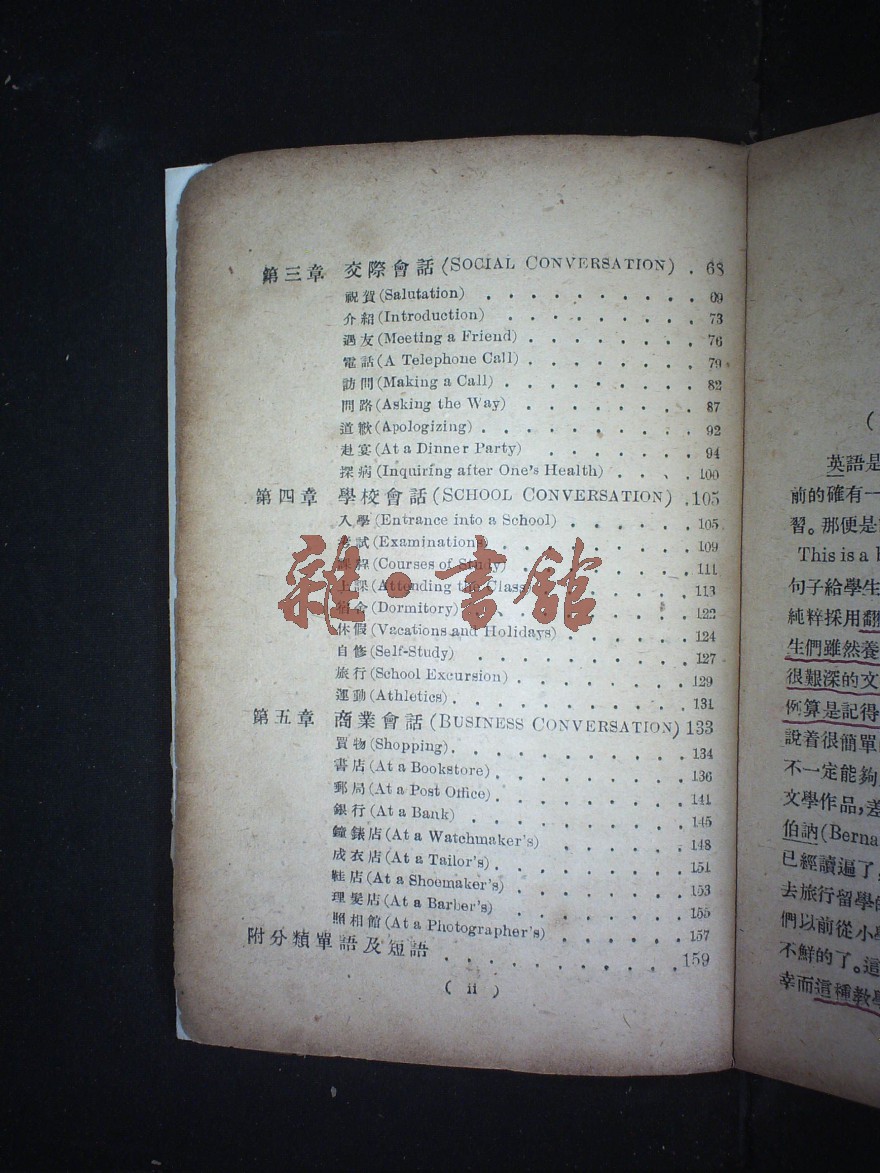 第三章 交際會話 (SOCIAL CONVERSATION) . 68
祝賀 (Salutation) . . . . . . . . . . 69
介紹 (Introduction) . . . . . . . . . 73
遇友 (Meeting a Friend) . . . . . . . . 76
電話 (A Telephone Call) . . . . . . . . 79
訪問 (Making a Call) . . . . . . . . . 82
問路 (Asking the Way) . . . . . . . . 87
道歉 (Apologizing) . . . . . . . . . 92
赴宴 (At a Dinner Party) . . . . . . . . 94
探病 (Inquiring after One's Health) . . . . 100
第四章 學校會話 (SCHOOL CONVERSATION) . 105
入學 (Entrance into a School) . . . . . . 105
考試 (Examinations) . . . . . . . . 109
課程 (Courses of Study) . . . . . . . . 111
上課 (Attending the Class) . . . . . . . 113
宿舍 (Dormitory) . . . . . . . . . 122
休假 (Vacations and Holidays) . . . . . . 124
自修 (Self-Study) . . . . . . . . . 127
旅行 (School Excursion) . . . . . . . . 129
運動 (Athletics) . . . . . . . . . . 131
第五章 商業會話 (BUSINESS CONVERSATION) 133
買物 (Shopping) . . . . . . . . . . 134
書店 (At a Bookstore) . . . . . . . . 136
郵局 (At a Post Office) . . . . . . . . 141
銀行 (At a Bank) . . . . . . . . . 145
鐘錶店 (At a Watchmaker's) . . . . . . 148
成衣店 (At a Tailor's) . . . . . . . . 151
鞋店 (At a Shoemaker's) . . . . . . . 153
理髮店 (At a Barber's) . . . . . . . . 155
照相館 (At a Photographer's) . . . . . . 157
附分類單語及短語 . . . . . . . . . . 159
( ii )
雜·書館
(
英語是
前的確有一
習。那便是
This is a
句子給學生
純粹採用翻
生們雖然養
很艱深的文
例算是記得
說着很簡單
不一定能夠
文學作品,差
伯訥 (Berna
已經讀遍了,
去旅行留學
們以前從小學
不鮮的了。這
幸而這種教學